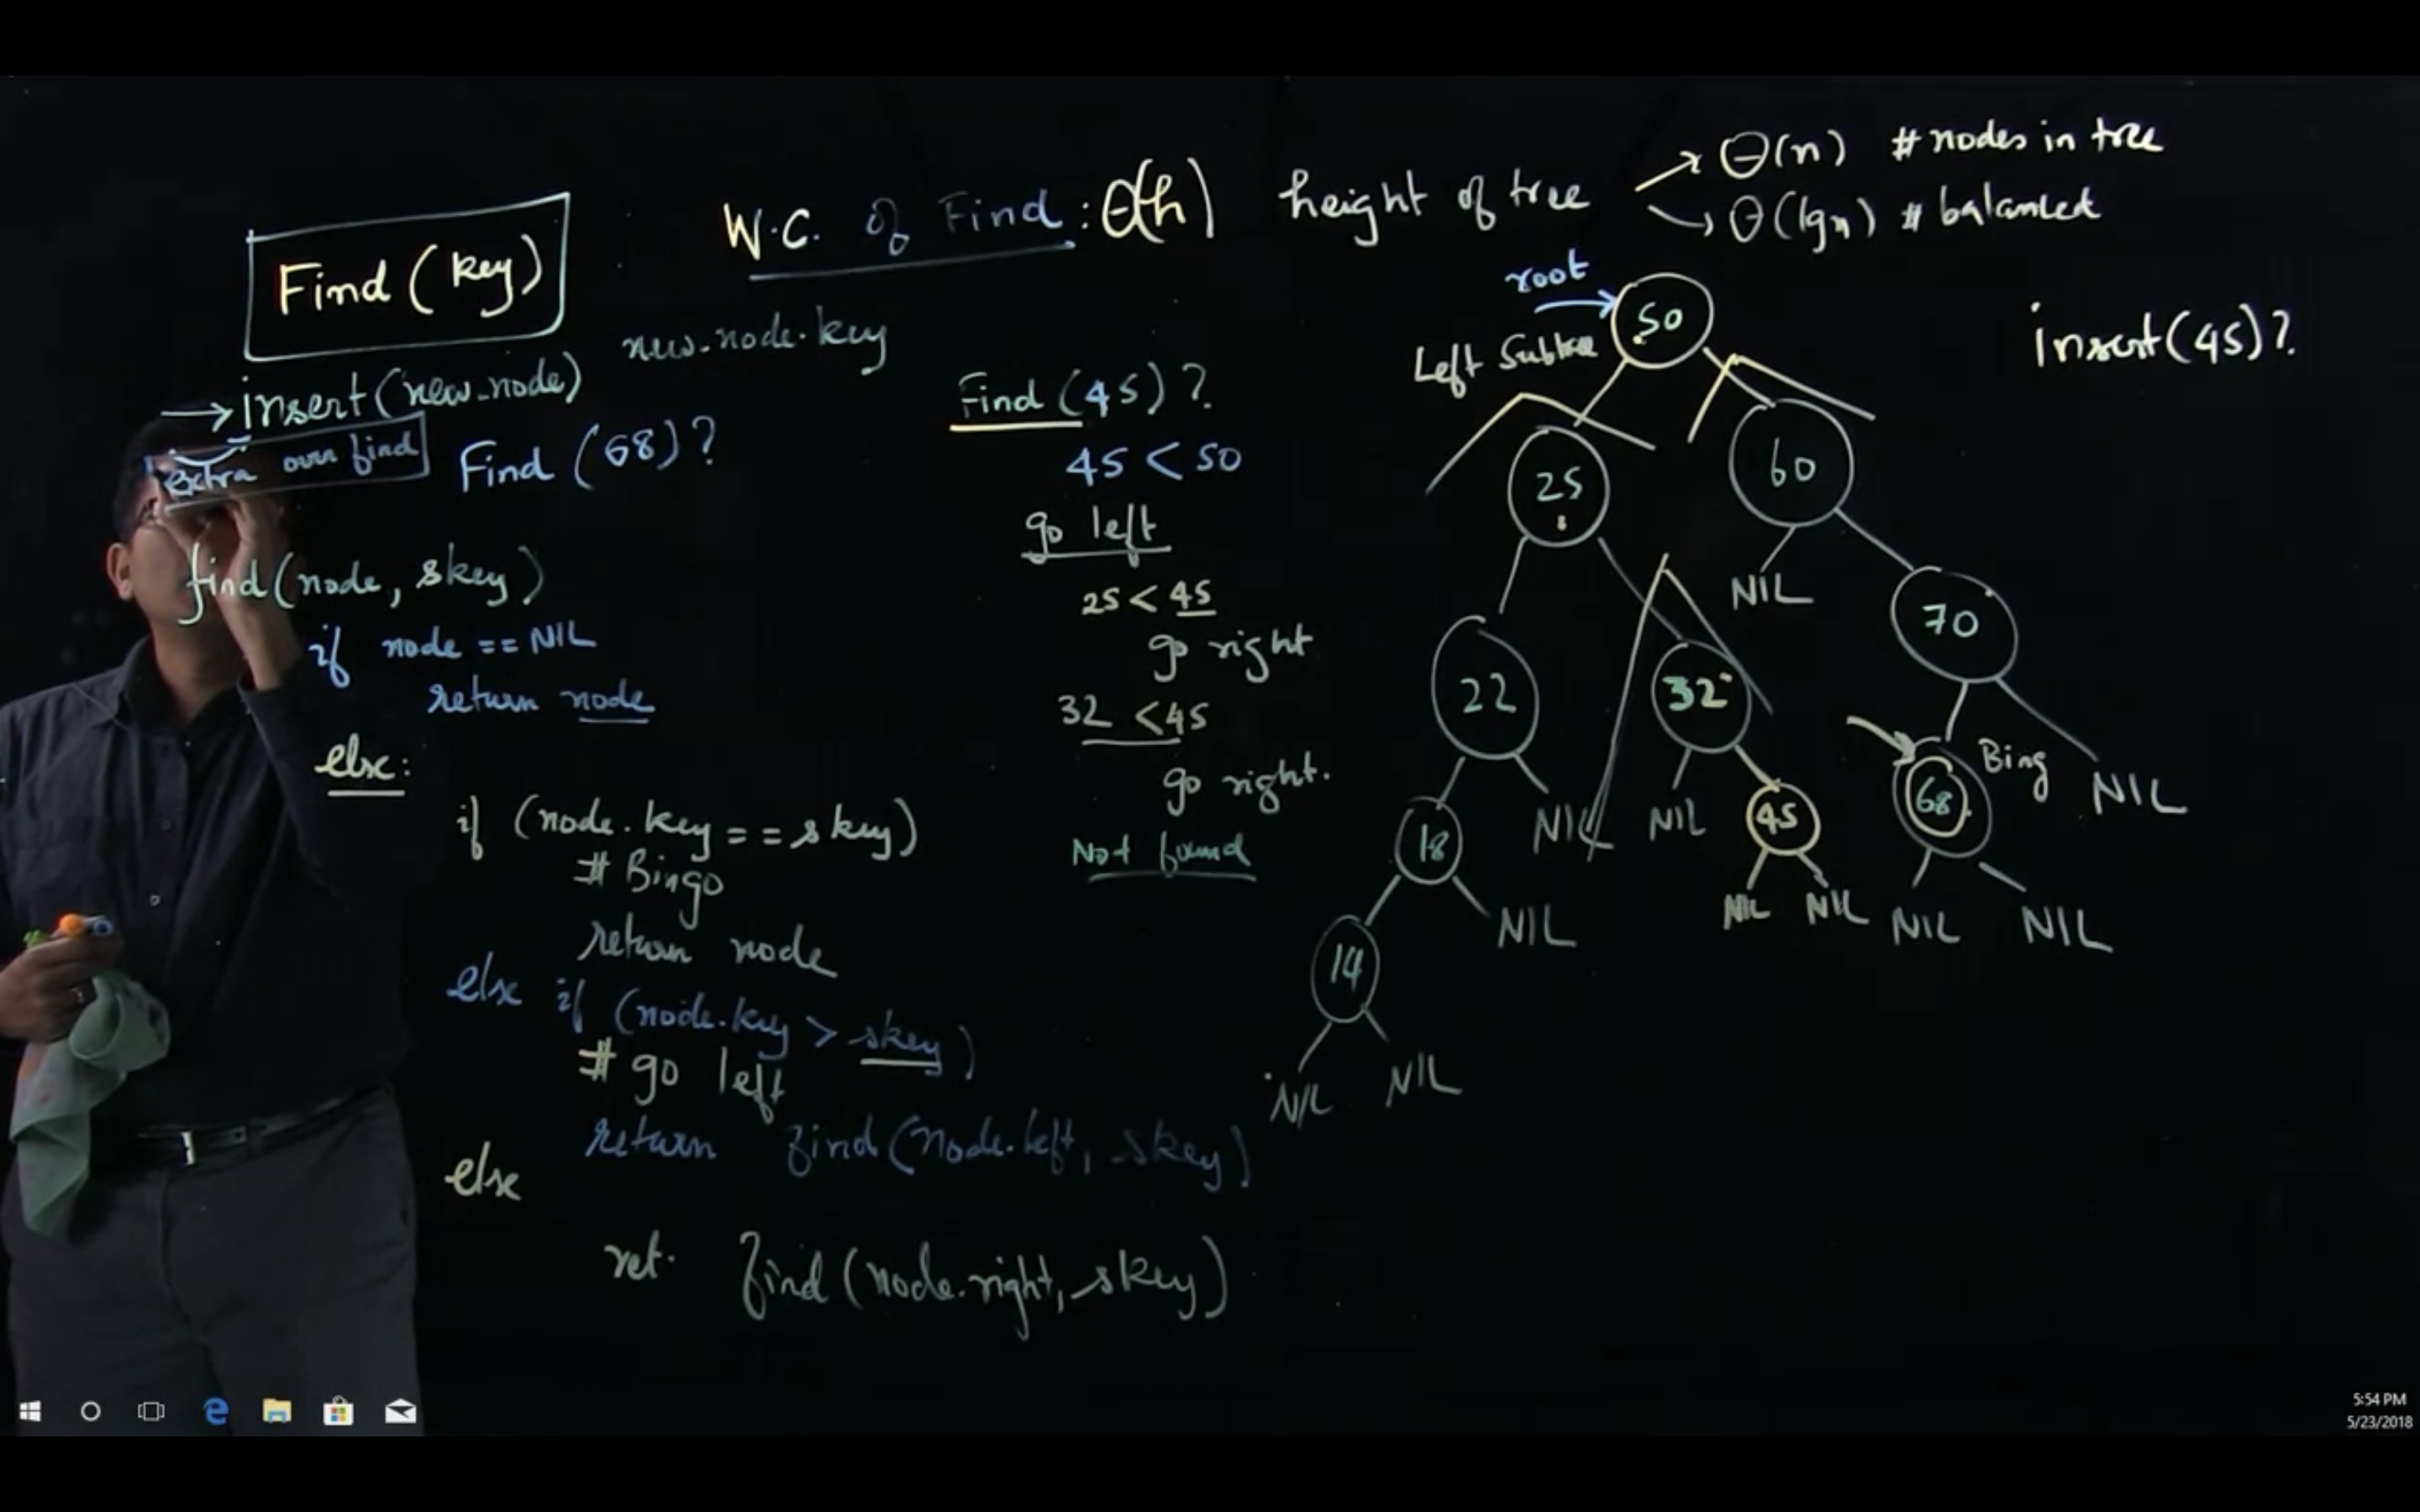 W.C. of Find: Θ(h) height of tree
Θ(n) # nodes in tree
Θ(lgn) # balanced
Find (key)
insert(new_node) new_node.key
extra over find
Find (68)?
find(node, skey)
if node == NIL
return node
else:
if (node.key == skey)
# Bingo
return node
else if (node.key > skey)
# go left
return find(node.left, skey)
else
ret. find(node.right, skey)
Find (45)?
45 < 50
go left
25 < 45
go right
32 < 45
go right.
Not found
root
50
Left Subtree
insert(45)?
25
60
NIL
70
22
32
68
Bing
NIL
18
NIL
NIL
45
14
NIL
NIL
NIL
NIL
NIL
NIL
NIL
5:54 PM
5/23/2018